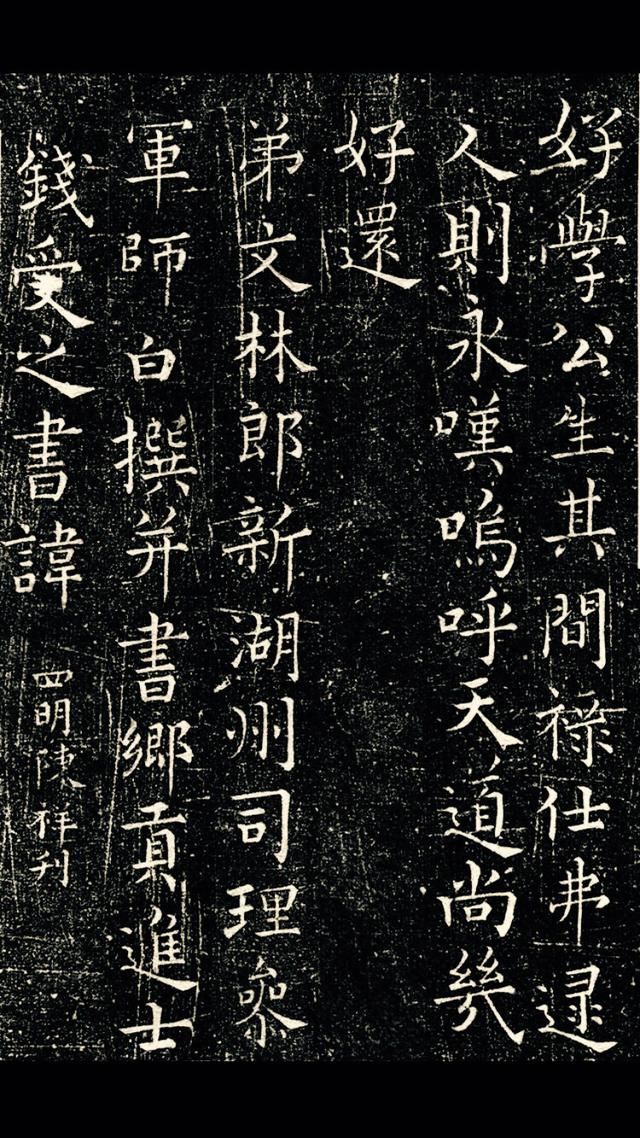 好學公生其間祿仕弗逯
人則永嘆嗚呼天道尚幾
好還
弟文林郎新湖州司理參
軍師白撰并書鄉貢進士
錢受之書諱 四明陳祥刋